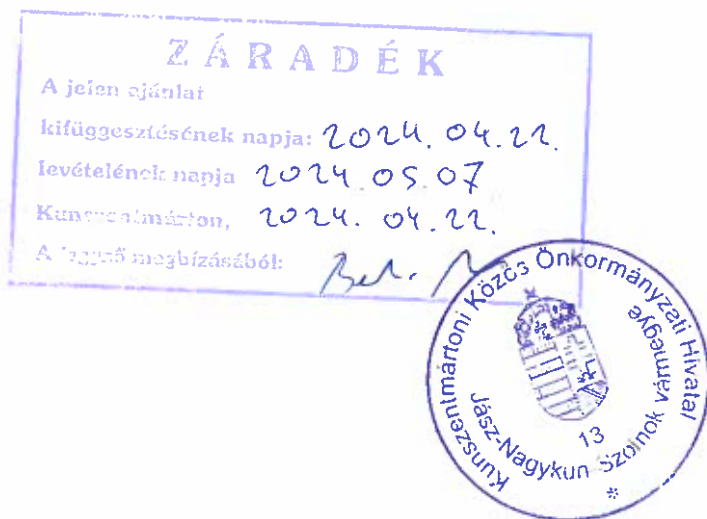 ZÁRADÉK
A jelen ajánlat
kifüggesztésének napja: 2024. 04. 22.
levételének napja 2024 05 07
Kunszentmárton, 2024. 04. 22.
A jegyző megbízásából:
Kunszentmártoni Közös Önkormányzati Hivatal
Jász-Nagykun Szolnok vármegye
13
*